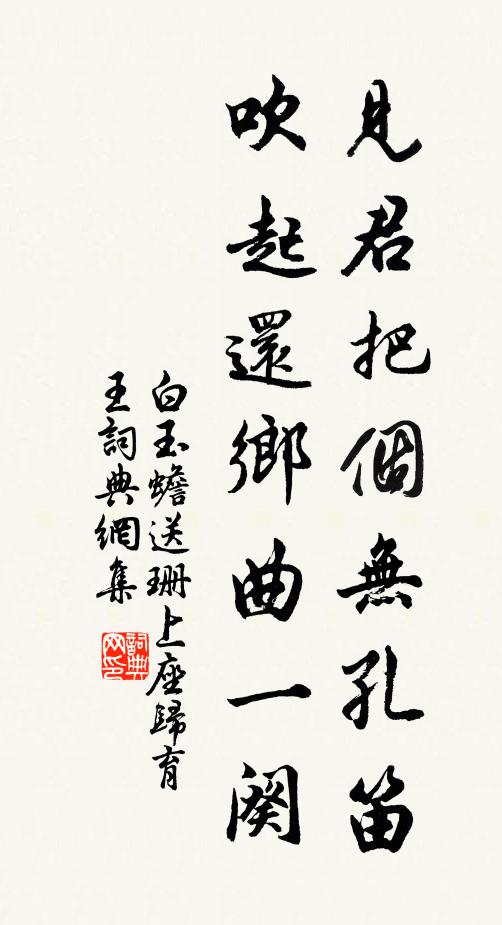 見君把個無孔笛
吹起還鄉曲一闋
白玉蟾送珊上座歸育
王詞典網集
詞典网印